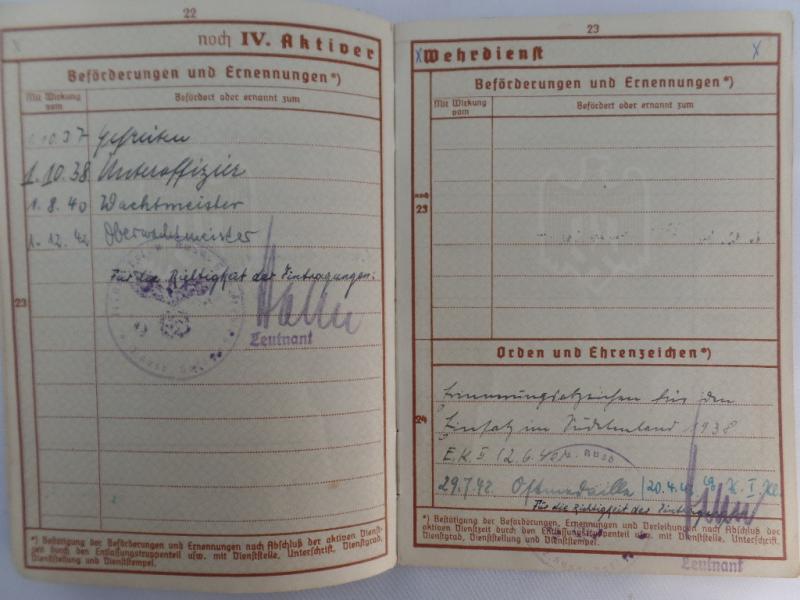 22
noch IV. Aktiver
Beförderungen und Ernennungen*)
Mit Wirkung vom
Befördert oder ernannt zum
1.10.37 Gefreiten
1.10.38 Unteroffizier
1.8.40 Wachtmeister
1.12.42 Oberwachtmeister
Für die Richtigkeit der Eintragungen:
23
Leutnant
*) Bestätigung der Beförderungen und Ernennungen nach Abschluß der aktiven Dienst-
zeit durch den Entlassungstruppenteil usw. mit Dienststelle, Unterschrift, Dienstgrad,
Dienststellung und Dienststempel.
23
x Wehrdienst x
Beförderungen und Ernennungen*)
Mit Wirkung vom
Befördert oder ernannt zum
noch
23
Orden und Ehrenzeichen*)
24
Erinnerungsabzeichen für den
Einsatz im Sudetenland 1938
E.K. II (2.6.40)
29.7.42. Ostmedaille 20.4. K. I. Kl.
Für die Richtigkeit der Eintragungen
*) Bestätigung der Beförderungen, Ernennungen und Verleihungen nach Abschluß der
aktiven Dienstzeit durch den Entlassungstruppenteil usw. mit Unterschrift,
Dienstgrad, Dienststellung und Dienststempel.
Leutnant